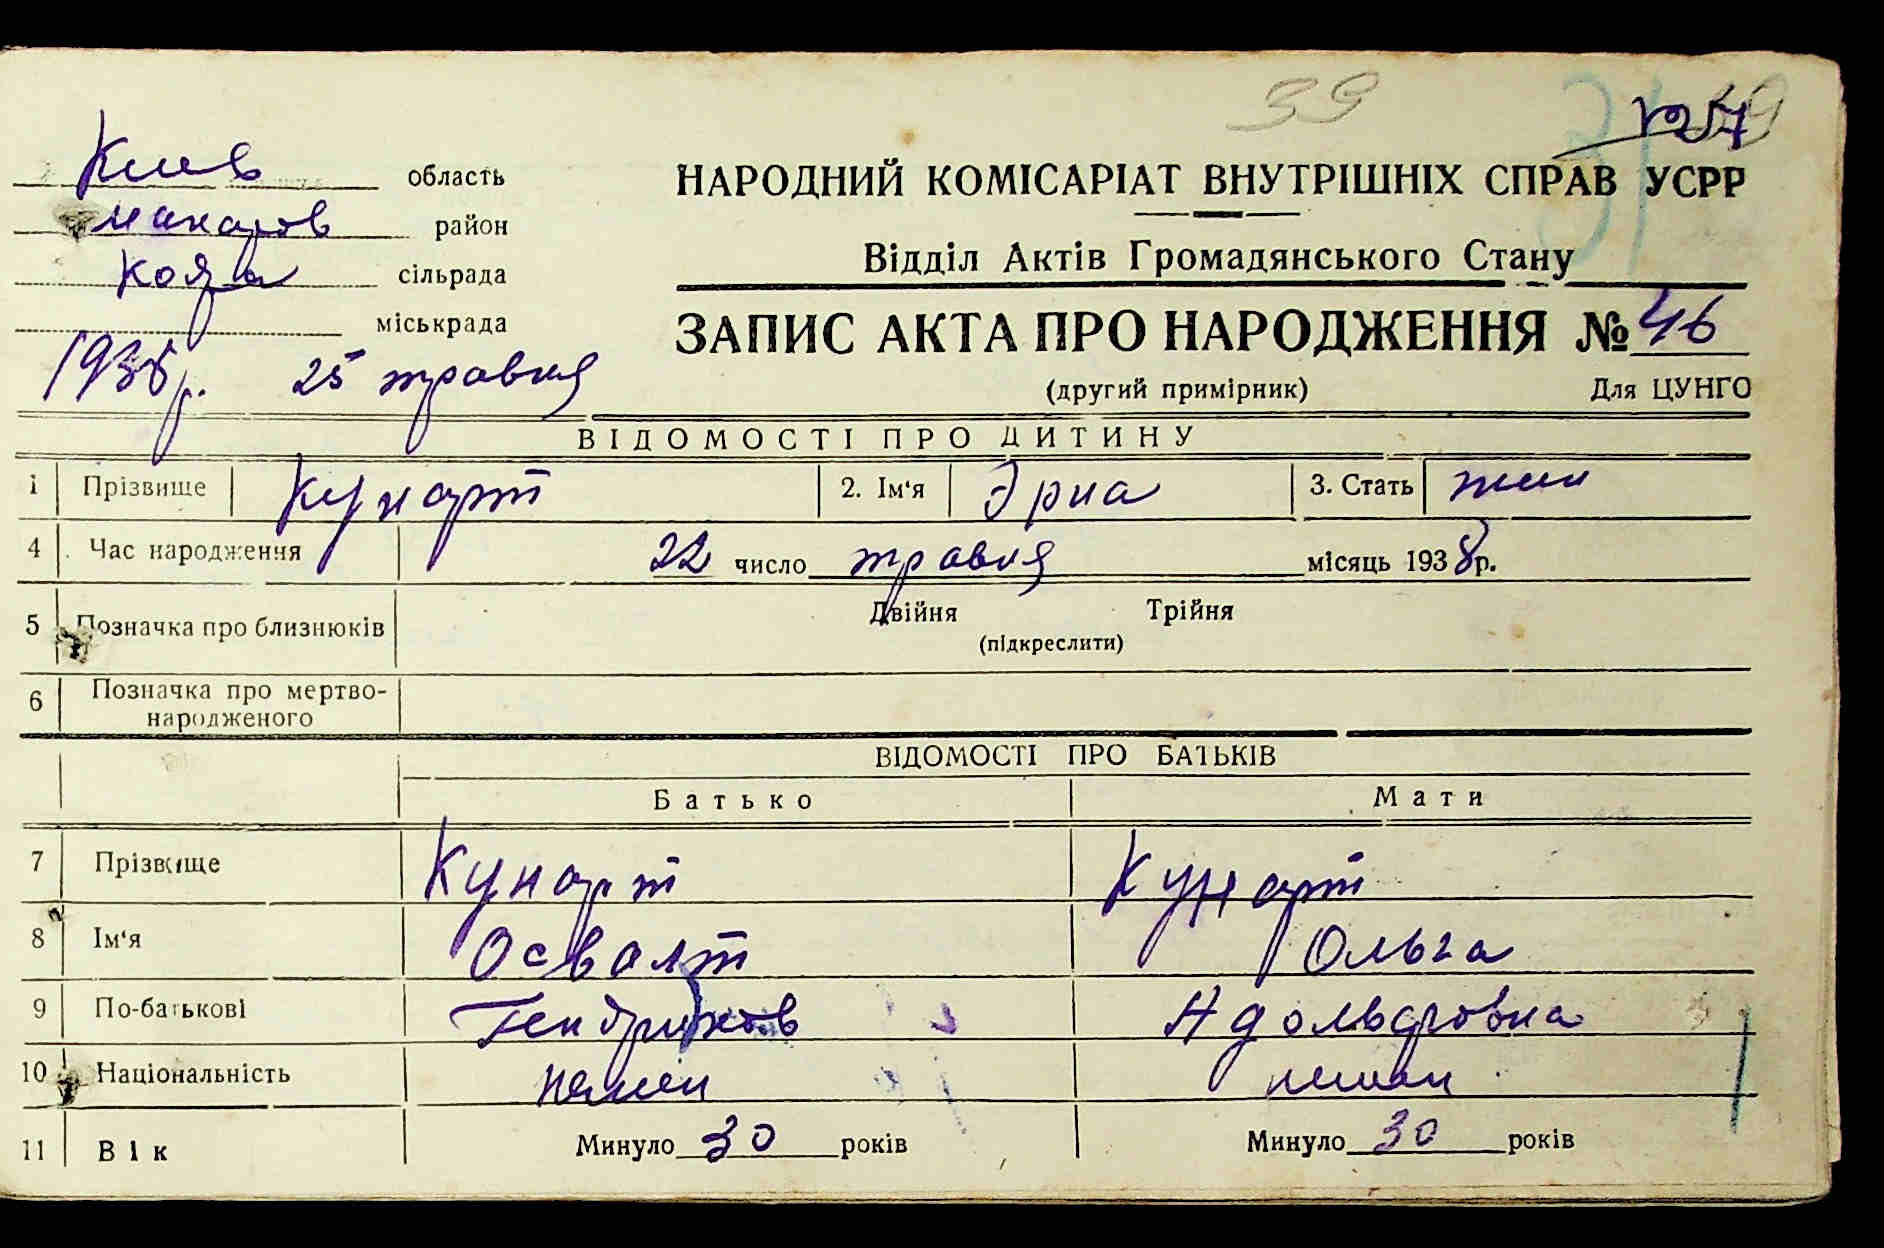 39
31
Киев область
макаров район
сільрада
міськрада
1938р. 25 травня
НАРОДНИЙ КОМІСАРІАТ ВНУТРІШНІХ СПРАВ УСРР
Відділ Актів Громадянського Стану
ЗАПИС АКТА ПРО НАРОДЖЕННЯ № 46
(другий примірник) Для ЦУНГО
ВІДОМОСТІ ПРО ДИТИНУ
1 Прізвище Кунарт 2. Ім'я Эрна 3. Стать жин
4 Час народження 22 число травня місяць 1938р.
5 Позначка про близнюків Двійня Трійня
(підкреслити)
6 Позначка про мертво-
народженого
ВІДОМОСТІ ПРО БАТЬКІВ
Батько Мати
7 Прізвище Кунарт Кунарт
8 Ім'я Освалт Ольга
9 По-батькові Гендриков Адольфовна
10 Національність немец
11 Вік Минуло 30 років Минуло 30 років